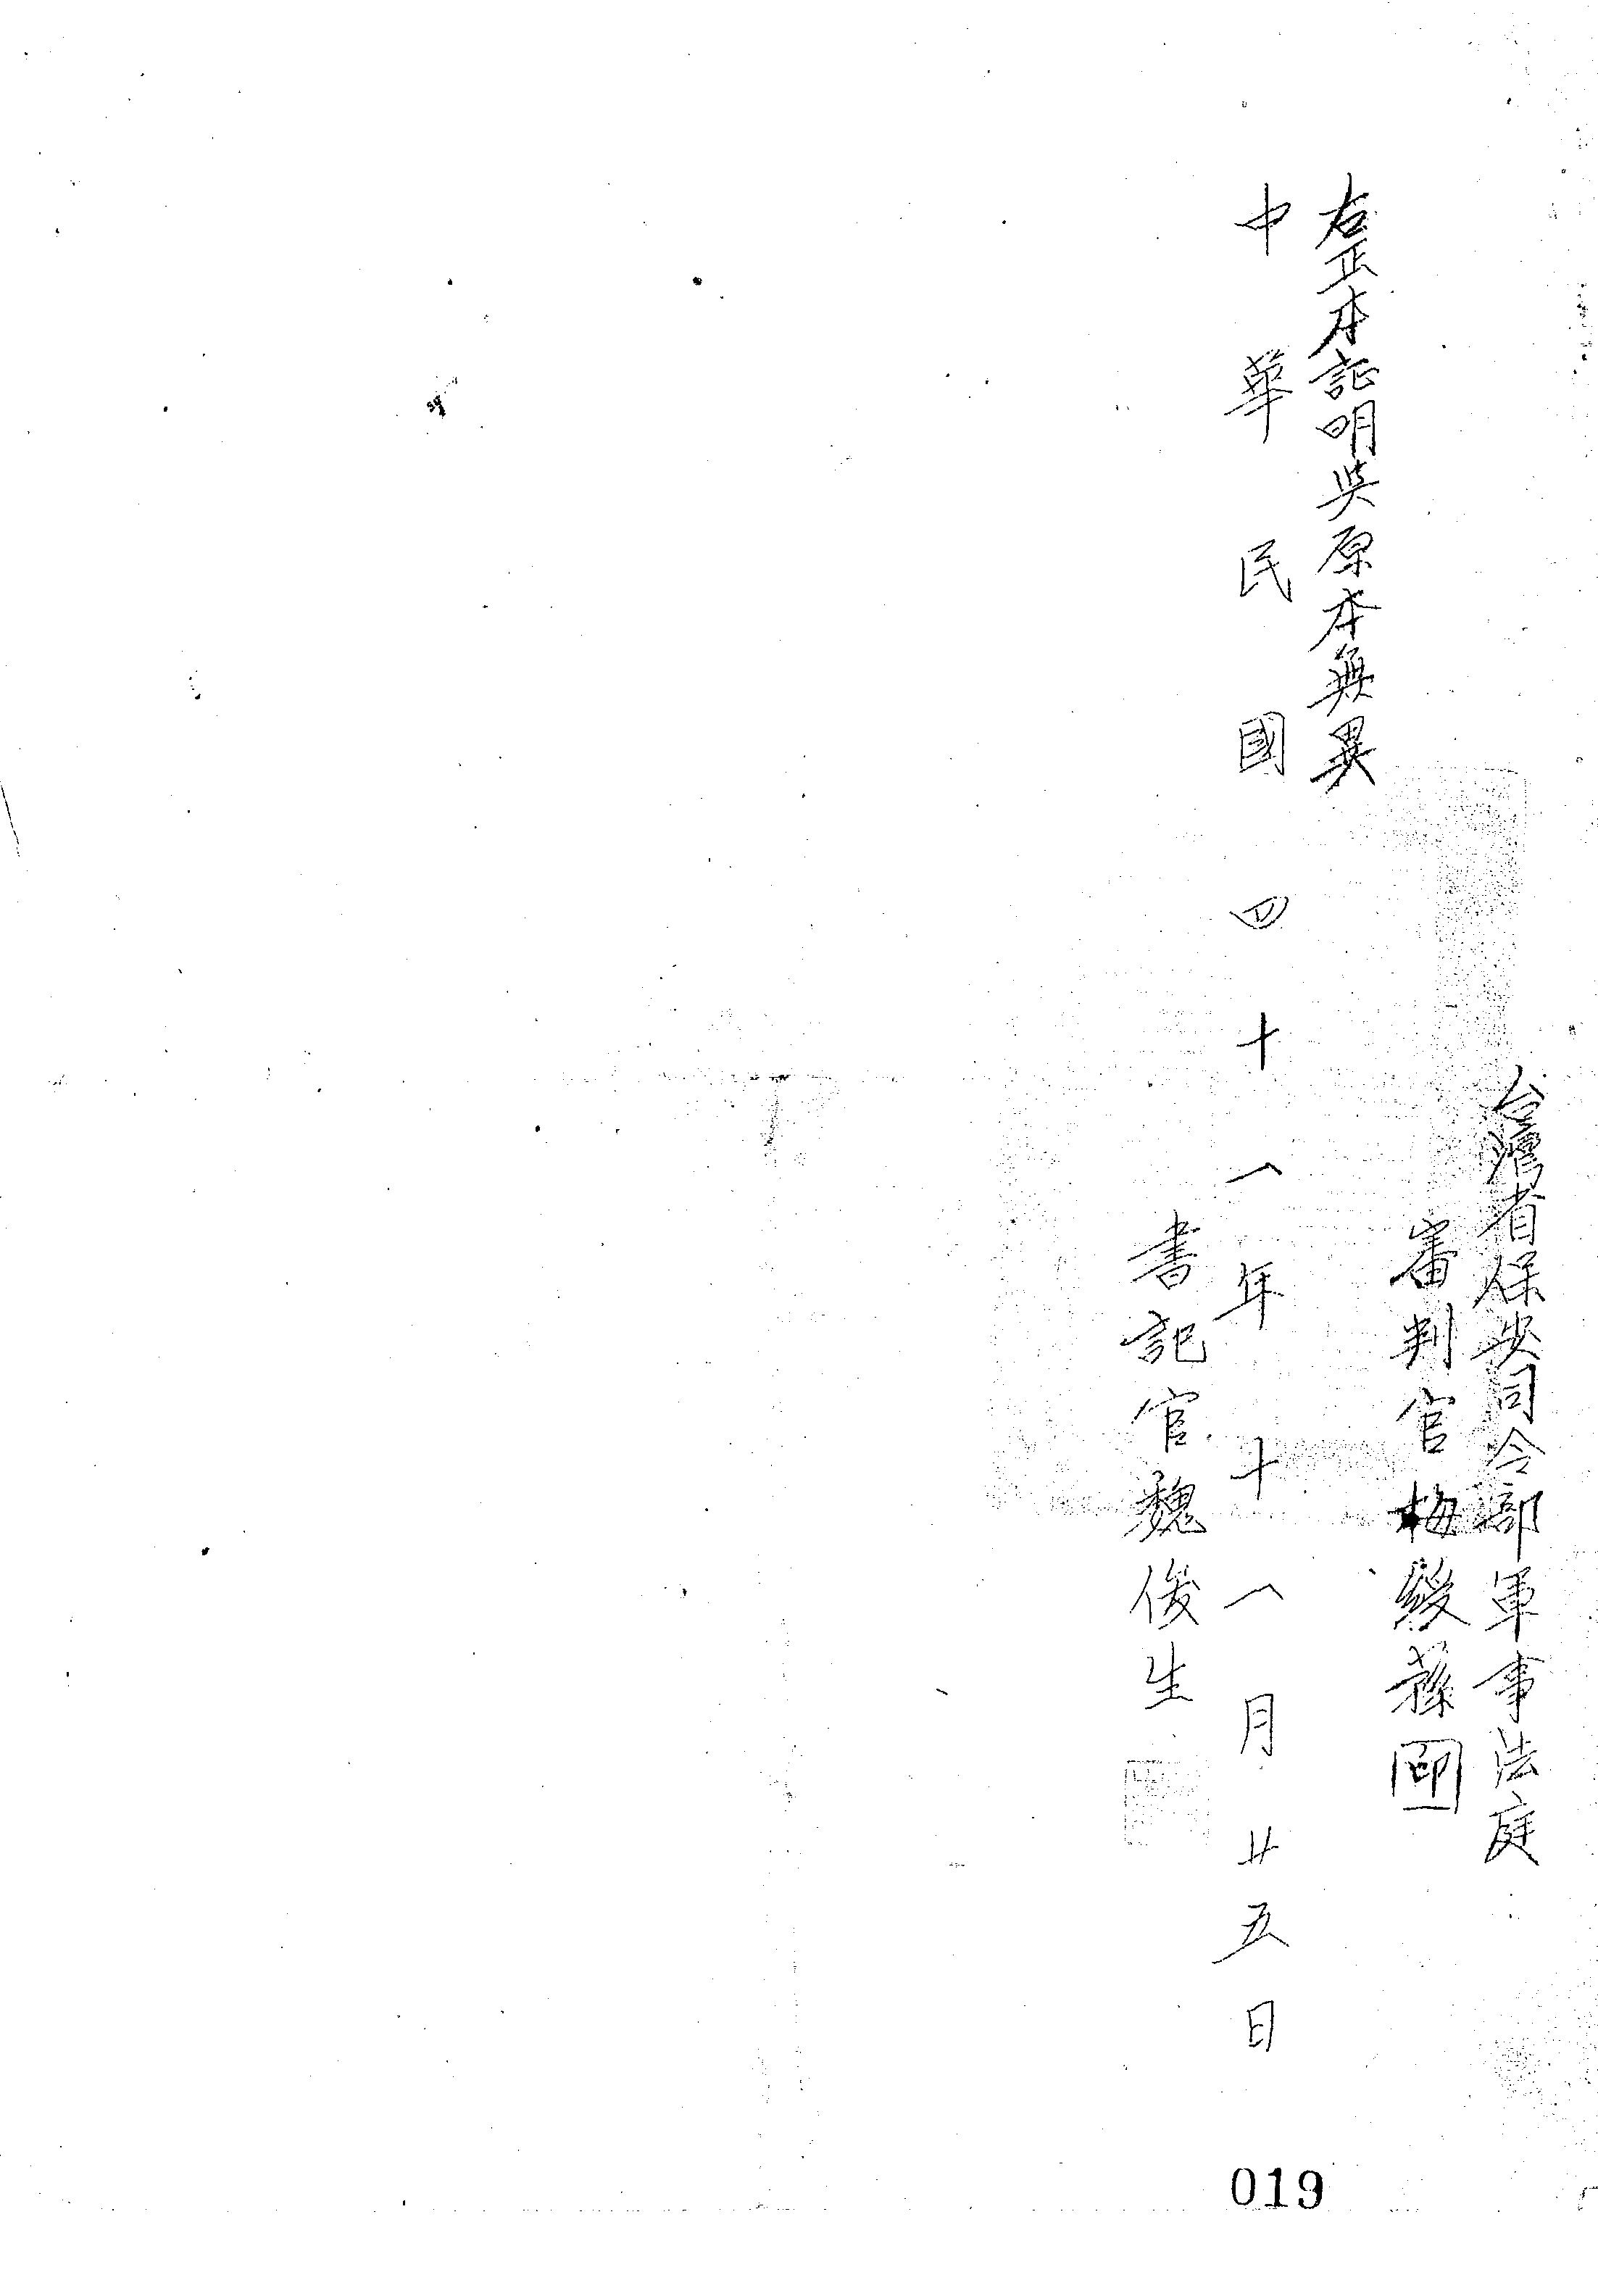 台灣省保安司令部軍事法庭
審判官梅綬蓀印
右正本証明與原本無異
中華民國四十一年十一月廿五日
書記官魏俊生
019